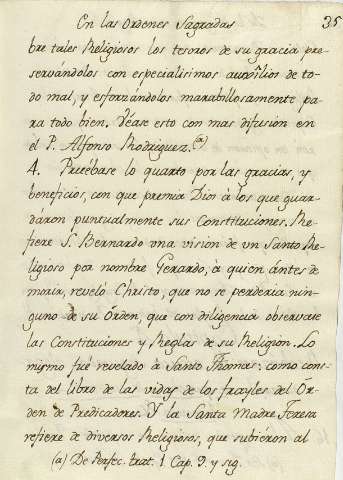 En las Ordenes Sagradas 35
bre tales Religiosos los tesoros de su gracia pre-
servándolos con especialisimos auxîlios de to-
do mal, y esforzándolos marabillosamente pa-
ra todo bien. Véase esto con mas difusión en
el P. Alfonso Rodriguez. (a)
4. Pruébase lo quarto por las gracias, y
beneficios, con que premia Dios à los que guar-
dáron puntualmente sus Constituciones. Re-
fiere S. Bernardo vna visión de vn Santo Re-
ligioso por nombre Gerardo, à quien ántes de
morir, reveló Christo, que no se perderia nin-
guno de su Orden, que con diligencia observase
las Constituciones y Reglas de su Religion. Lo
mismo fué revelado à Santo Thomas: como cons-
ta del libro de las vidas de los frayles del Or-
den de Predicadores. Y la Santa Madre Teresa
refiere de diversos Religiosos, que subiéron al
(a) De Perfec. trat. 1. Cap. 9. y sig.